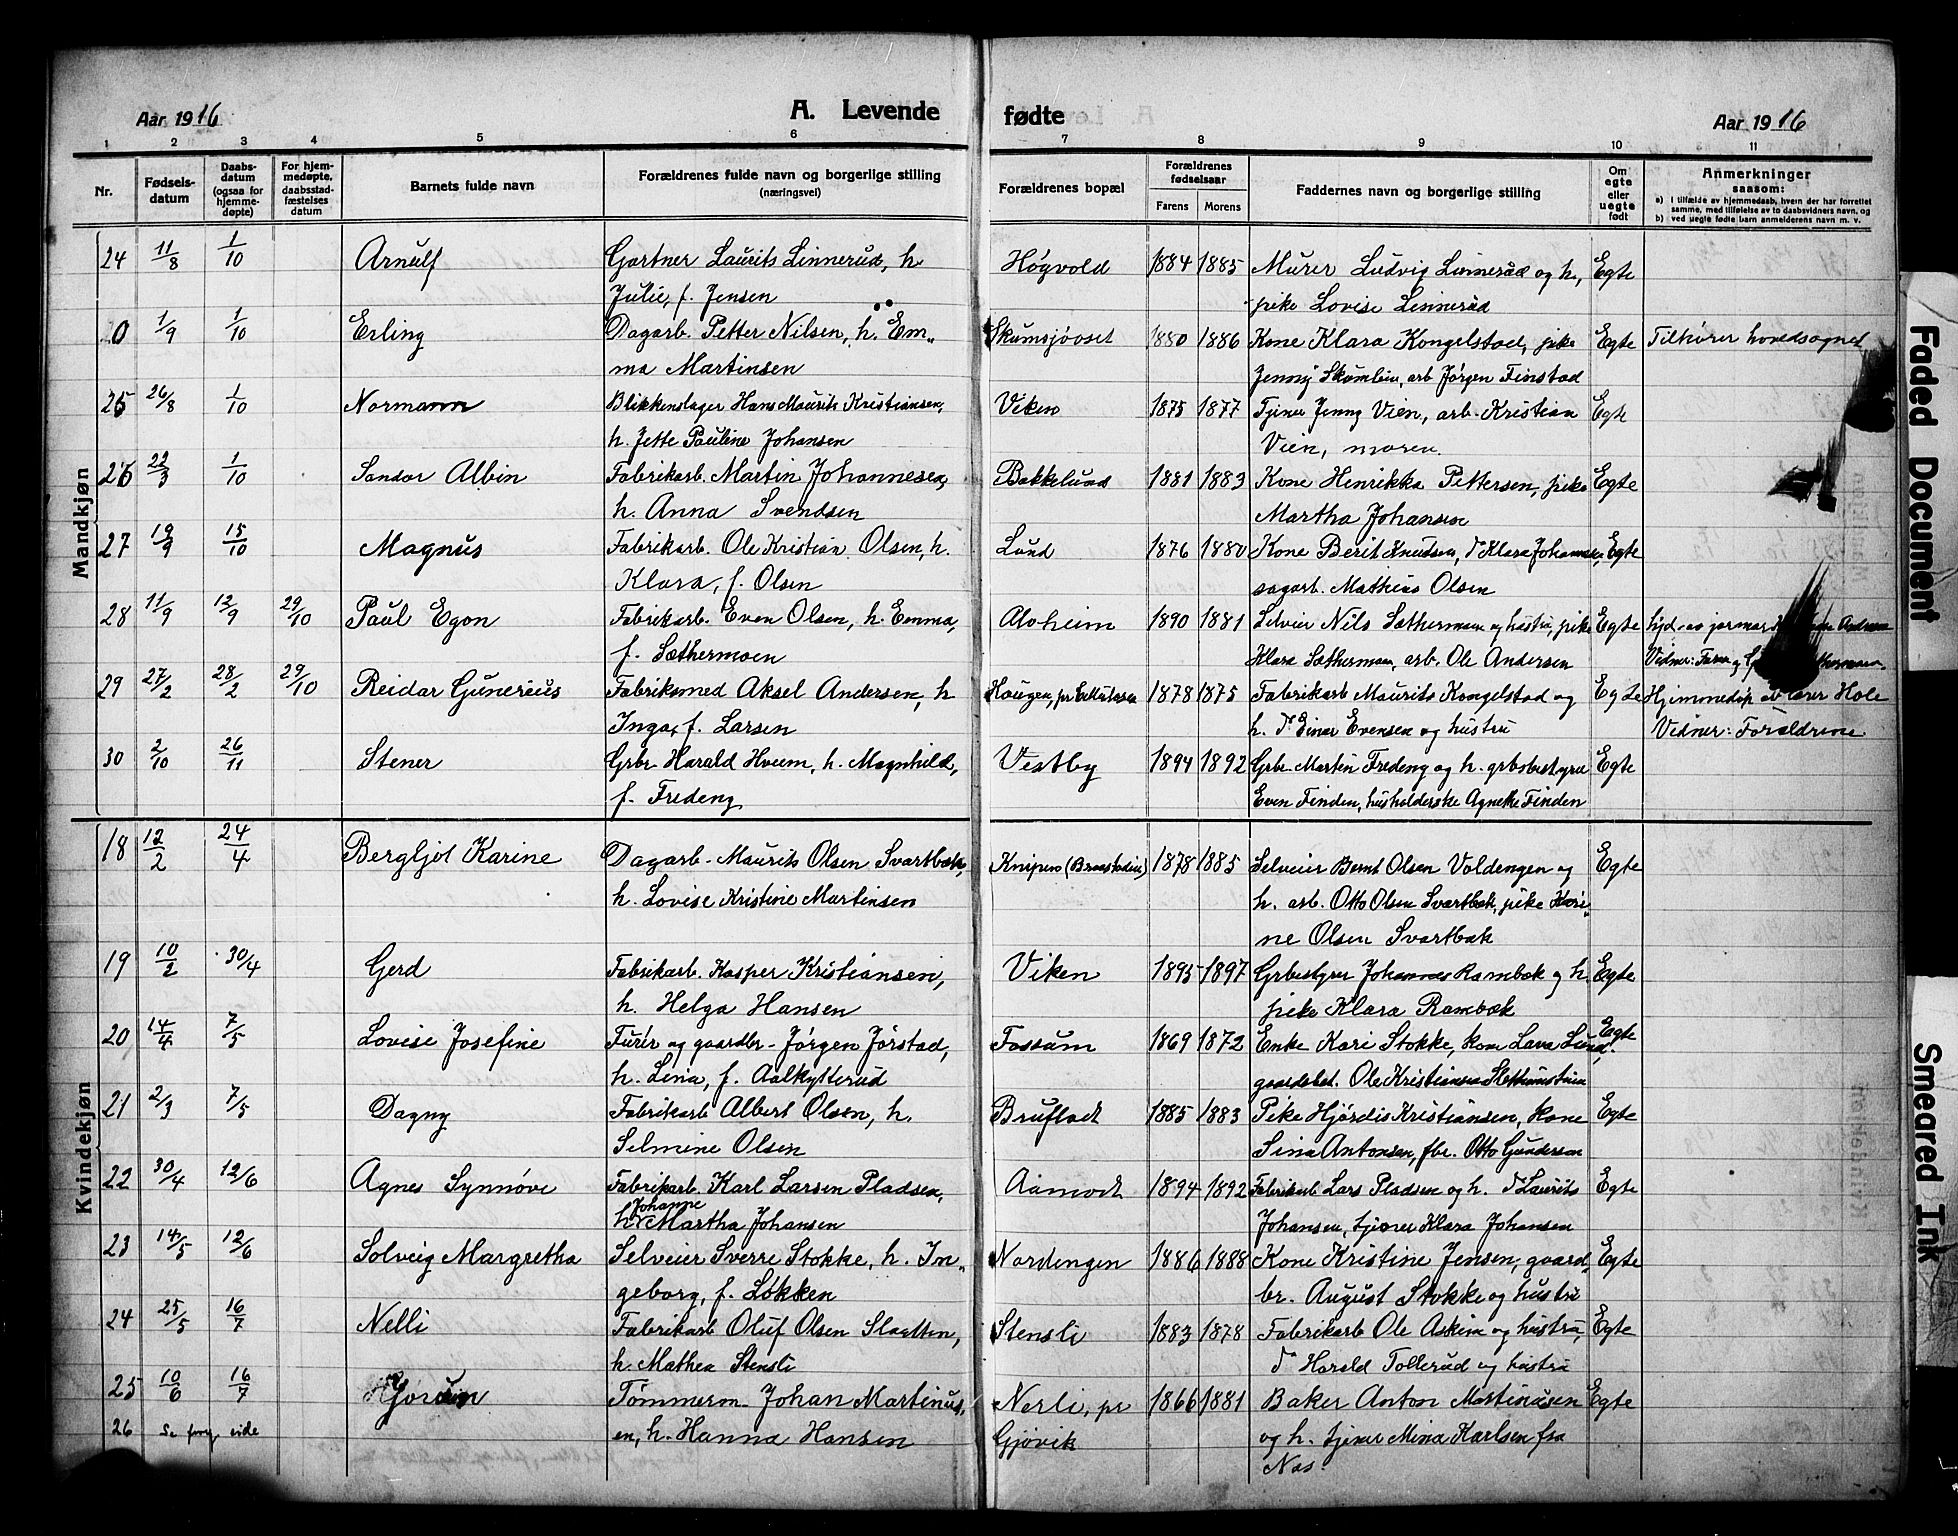 Aar 1916
A. Levende
fødte
Aar 1916
1 2 3 4 5 6 7 8 9 10 11
Nr.
Fødselsdatum
Daabsdatum (ogsaa for hjemmedøpte)
For hjemmedøpte, daabsstadfæstelses datum
Barnets fulde navn
Forældrenes fulde navn og borgerlige stilling (næringsvei)
Forældrenes bopæl
Forældrenes fødselsaar
Farens Morens
Faddernes navn og borgerlige stilling
Om egte eller uegte født
Anmerkninger
saasom:
a) I tilfælde av hjemmedaab, hvem der har forrettet samme, med tilføielse av to daabsvidners navn, og
b) ved uegte fødte barn anmelderens navn m. v.
Mandkjøn
24 11/8 1/10 Arnulf Gartner Laurits Linnerud, h. Høgvold 1884 1885 Murer Ludvig Linnerud og h., Egte
Julie, f. Jensen pike Lovise Linnerud
0 1/9 1/10 Erling Dagarb. Petter Nilsen, h. Em„ Skumsjøoset 1880 1886 Kone Klara Kongelstad, pike Egte Tilhører hovedsognet
ma Martinsen Jenny Skumlien, arb Jørgen Finstad
25 26/8 1/10 Normann Blikkenslager Hans Maurits Kristiansen, Viken 1875 1877 Tjener Jenny Vien, arb. Kristian Egte
h. Jette Pauline Johansen Vien, moren.
26 22/3 1/10 Sandor Albin Fabrikarb. Martin Johannesen, Bakkelund 1881 1883 Kone Henrikka Pettersen, pike Egte
h. Anna Svendsen Martha Johansen
27 19/9 15/10 Magnus Fabrikarb. Ole Kristian Olsen, h. Lund 1876 1880 Kone Berit Knudsen, d° Klara Johannesen, Egte
Klara, f. Olsen sagarb. Mathias Olsen
28 11/9 12/9 29/10 Paul Egon Fabrikarb. Even Olsen, h. Emma, Alvheim 1890 1881 Selveier Nils Sæthermoen og hustru, pike Egte hjd. av jormor
f. Sæthermoen Klara Sæthermoen, arb. Ole Andersen Vidner: Faren og
29 27/2 28/2 29/10 Reidar Gunerius Fabriksmed Aksel Andersen, h Haugen, 1878 1875 Fabrikarb Maurits Kongelstad og Egte Hjemmedøp av lærer Hole
Inga, f. Larsen h. d° Einar Evensen og hustru Vidner: Forældrene
30 2/10 26/11 Stener Grbr Harald Hveem, h. Magnhild, Vestby 1894 1892 Grbr. Martin Fredeng og h. grbsbestyrer Egte
f. Fredeng Even Finden, husholderske Agnethe Finden
Kvindekjøn
18 12/2 24/4 Bergljot Karine Dagarb. Maurits Olsen Svartbæk, Knipen (Braastadlien) 1878 1885 Selveier Bernt Olsen Voldengen og Egte
h. Lovise Kristine Martinsen h. arb. Otto Olsen Svartbæk, pike Kari-
ne Olsen Svartbæk
19 10/2 30/4 Gerd Fabrikarb. Kasper Kristiansen, Viken 1895 1897 Grbestyrer Johannes Rambæk og h. Egte
h. Helga Hansen pike Klara Rambæk
20 14/4 7/5 Lovise Josefine Furér og gaardbr. Jørgen Jørstad, Fossum 1869 1872 Enke Kari Stokke, kone Lava Lund. Egte
h. Lina, f. Aalkytterud gaardsbest. Ole Kristiansen
21 2/3 7/5 Dagny Fabrikarb Albert Olsen, h. Bruflodt 1885 1883 Pike Hjørdis Kristiansen, kone Egte
Selmine Olsen Sina Antonsen, fbr. Otto Gundersen
22 30/4 12/6 Agnes Synnøve Fabrikarb. Karl Larsen Pladsen, Aamodt 1894 1892 Fabrikarb Lars Pladsen og h. d° Laurits Egte
Johanne
h. Martha Johansen Johansen, tjener Klara Johansen
23 14/5 12/6 Solveig Margretha Selveier Sverre Stokke, h. In„ Nordengen 1886 1888 Kone Kristine Jensen, gaard Egte
geborg, f. Løkken br. August Stokke og hustru
24 25/5 16/7 Nelli Fabrikarb Oluf Olsen Slaatten, Stensli 1883 1878 Fabrikarb Ole Askim og hustru, Egte
h. Mathea Stensli d° Harald Tollerud og hustru
25 10/6 16/7 Jorunn Tømmerm. Johan Martinus„ Nerli, pr 1866 1881 Baker Anton Martinusen Egte
26 Se forg. side en, h. Hanna Hansen Gjøvik og h. tjener Mina Karlsen fra
Næs.
Faded Document
Smeared Ink